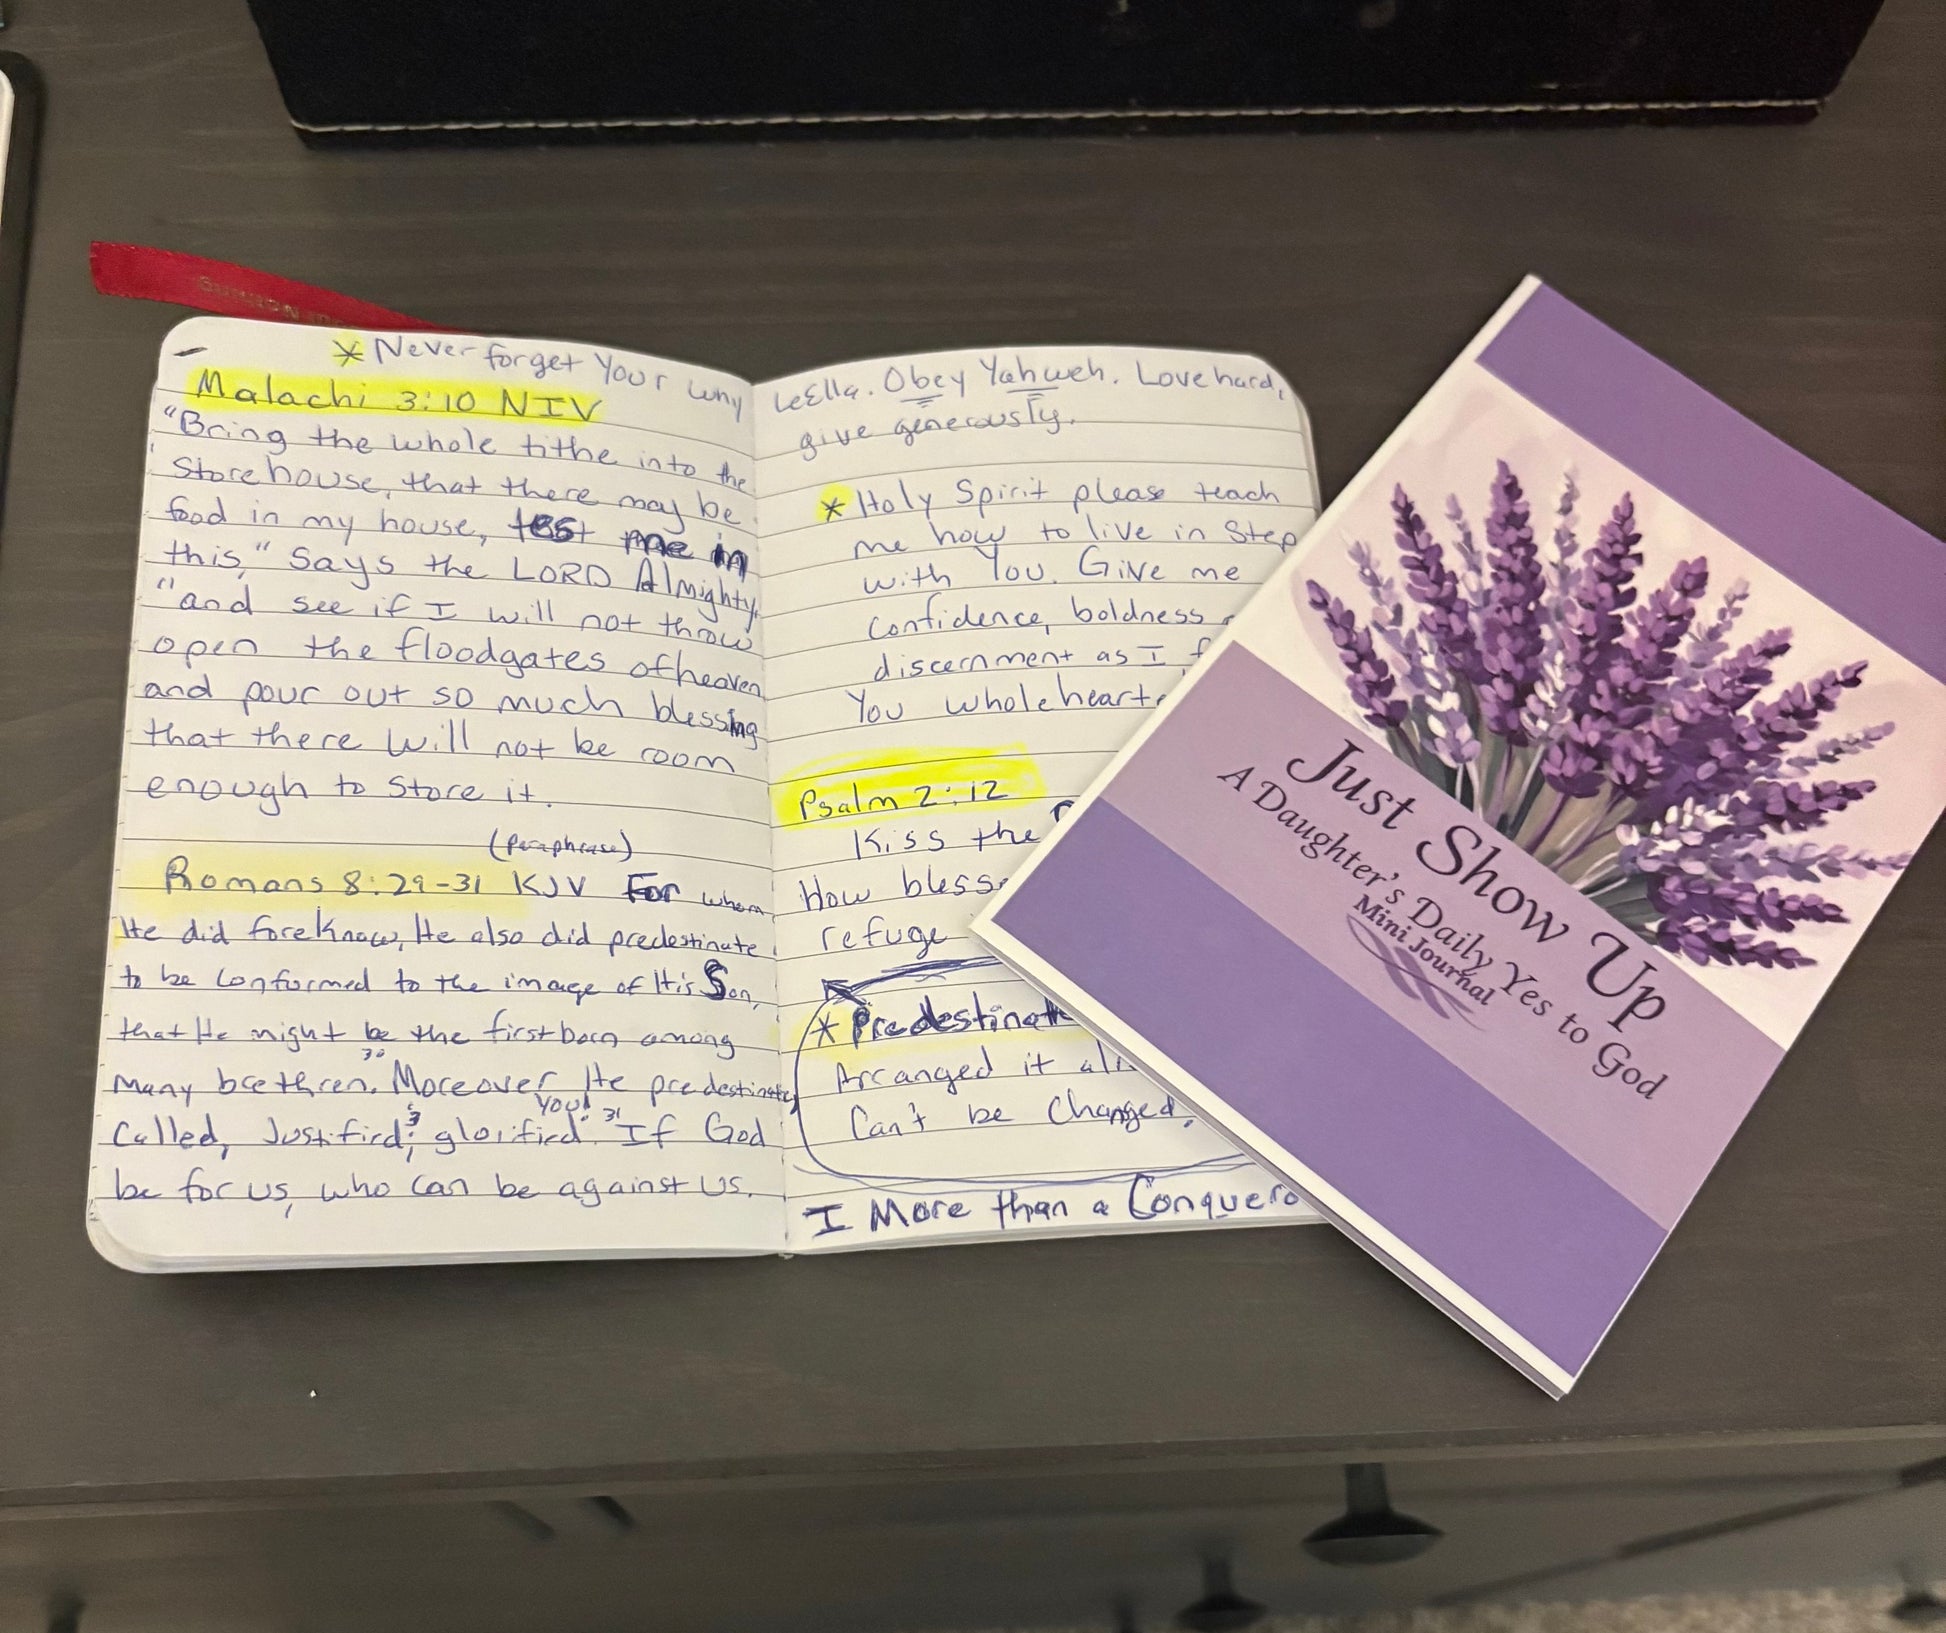 * Never forget Your why
Malachi 3:10 NIV
"Bring the whole tithe into the
Storehouse, that there may be
food in my house, test me in
this," Says the LORD Almighty,
"and see if I will not throw
open the floodgates of heaven
and pour out so much blessing
that there will not be room
enough to store it.
(Paraphrase)
Romans 8:29-31 KJV For whom
He did foreknow, He also did predestinate
to be conformed to the image of His Son,
that He might be the firstborn among
30
many brethren. Moreover He predestinate
YOU! 31
Called, Justified, & glorified. If God
be for us, who can be against us.
LeElla. Obey Yahweh. Love hard,
give generously.
* Holy Spirit please teach
me how to live in Step
with You. Give me
Confidence, boldness
discernment as I
You
Psalm 2:12
Kiss the
How
refuge
*
Arranged it
Can't be Changed.
I More than a
Just Show Up
A Daughter's Daily Yes to God
Mini Journal